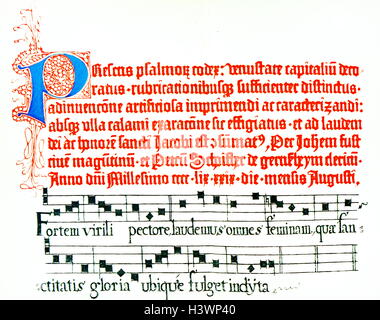 PResens psalmoꝝ codex: venustate capitaliū deco
ratus. rubricationibusqꝫ sufficienter distinctus.
adinuencōne artificiosa imprimendi ac caracterizandi:
absqꝫ vlla calami exaracōne sic effigiatus. et ad laudem
dei ac honorē sancti Jacobi est ꝯsūmatꝰ, Per Johēm fust
ciuem magūtinū. et Petrū Schoiffer de gernßheym clericū,
Anno dn̄i Millesimo cccc. lix. xxix. die mensis Augusti,
Fortem virili pectore, laudemus omnes feminam, quæ san
ctitatis gloria ubique fulget inclyta
alamy stock photo
H3WP40
www.alamy.com